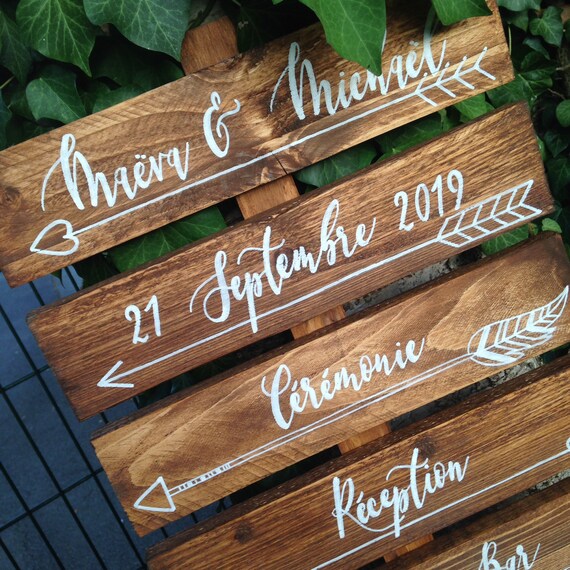 Maëva & Michaël
21 Septembre 2019
Cérémonie
Réception
Bar